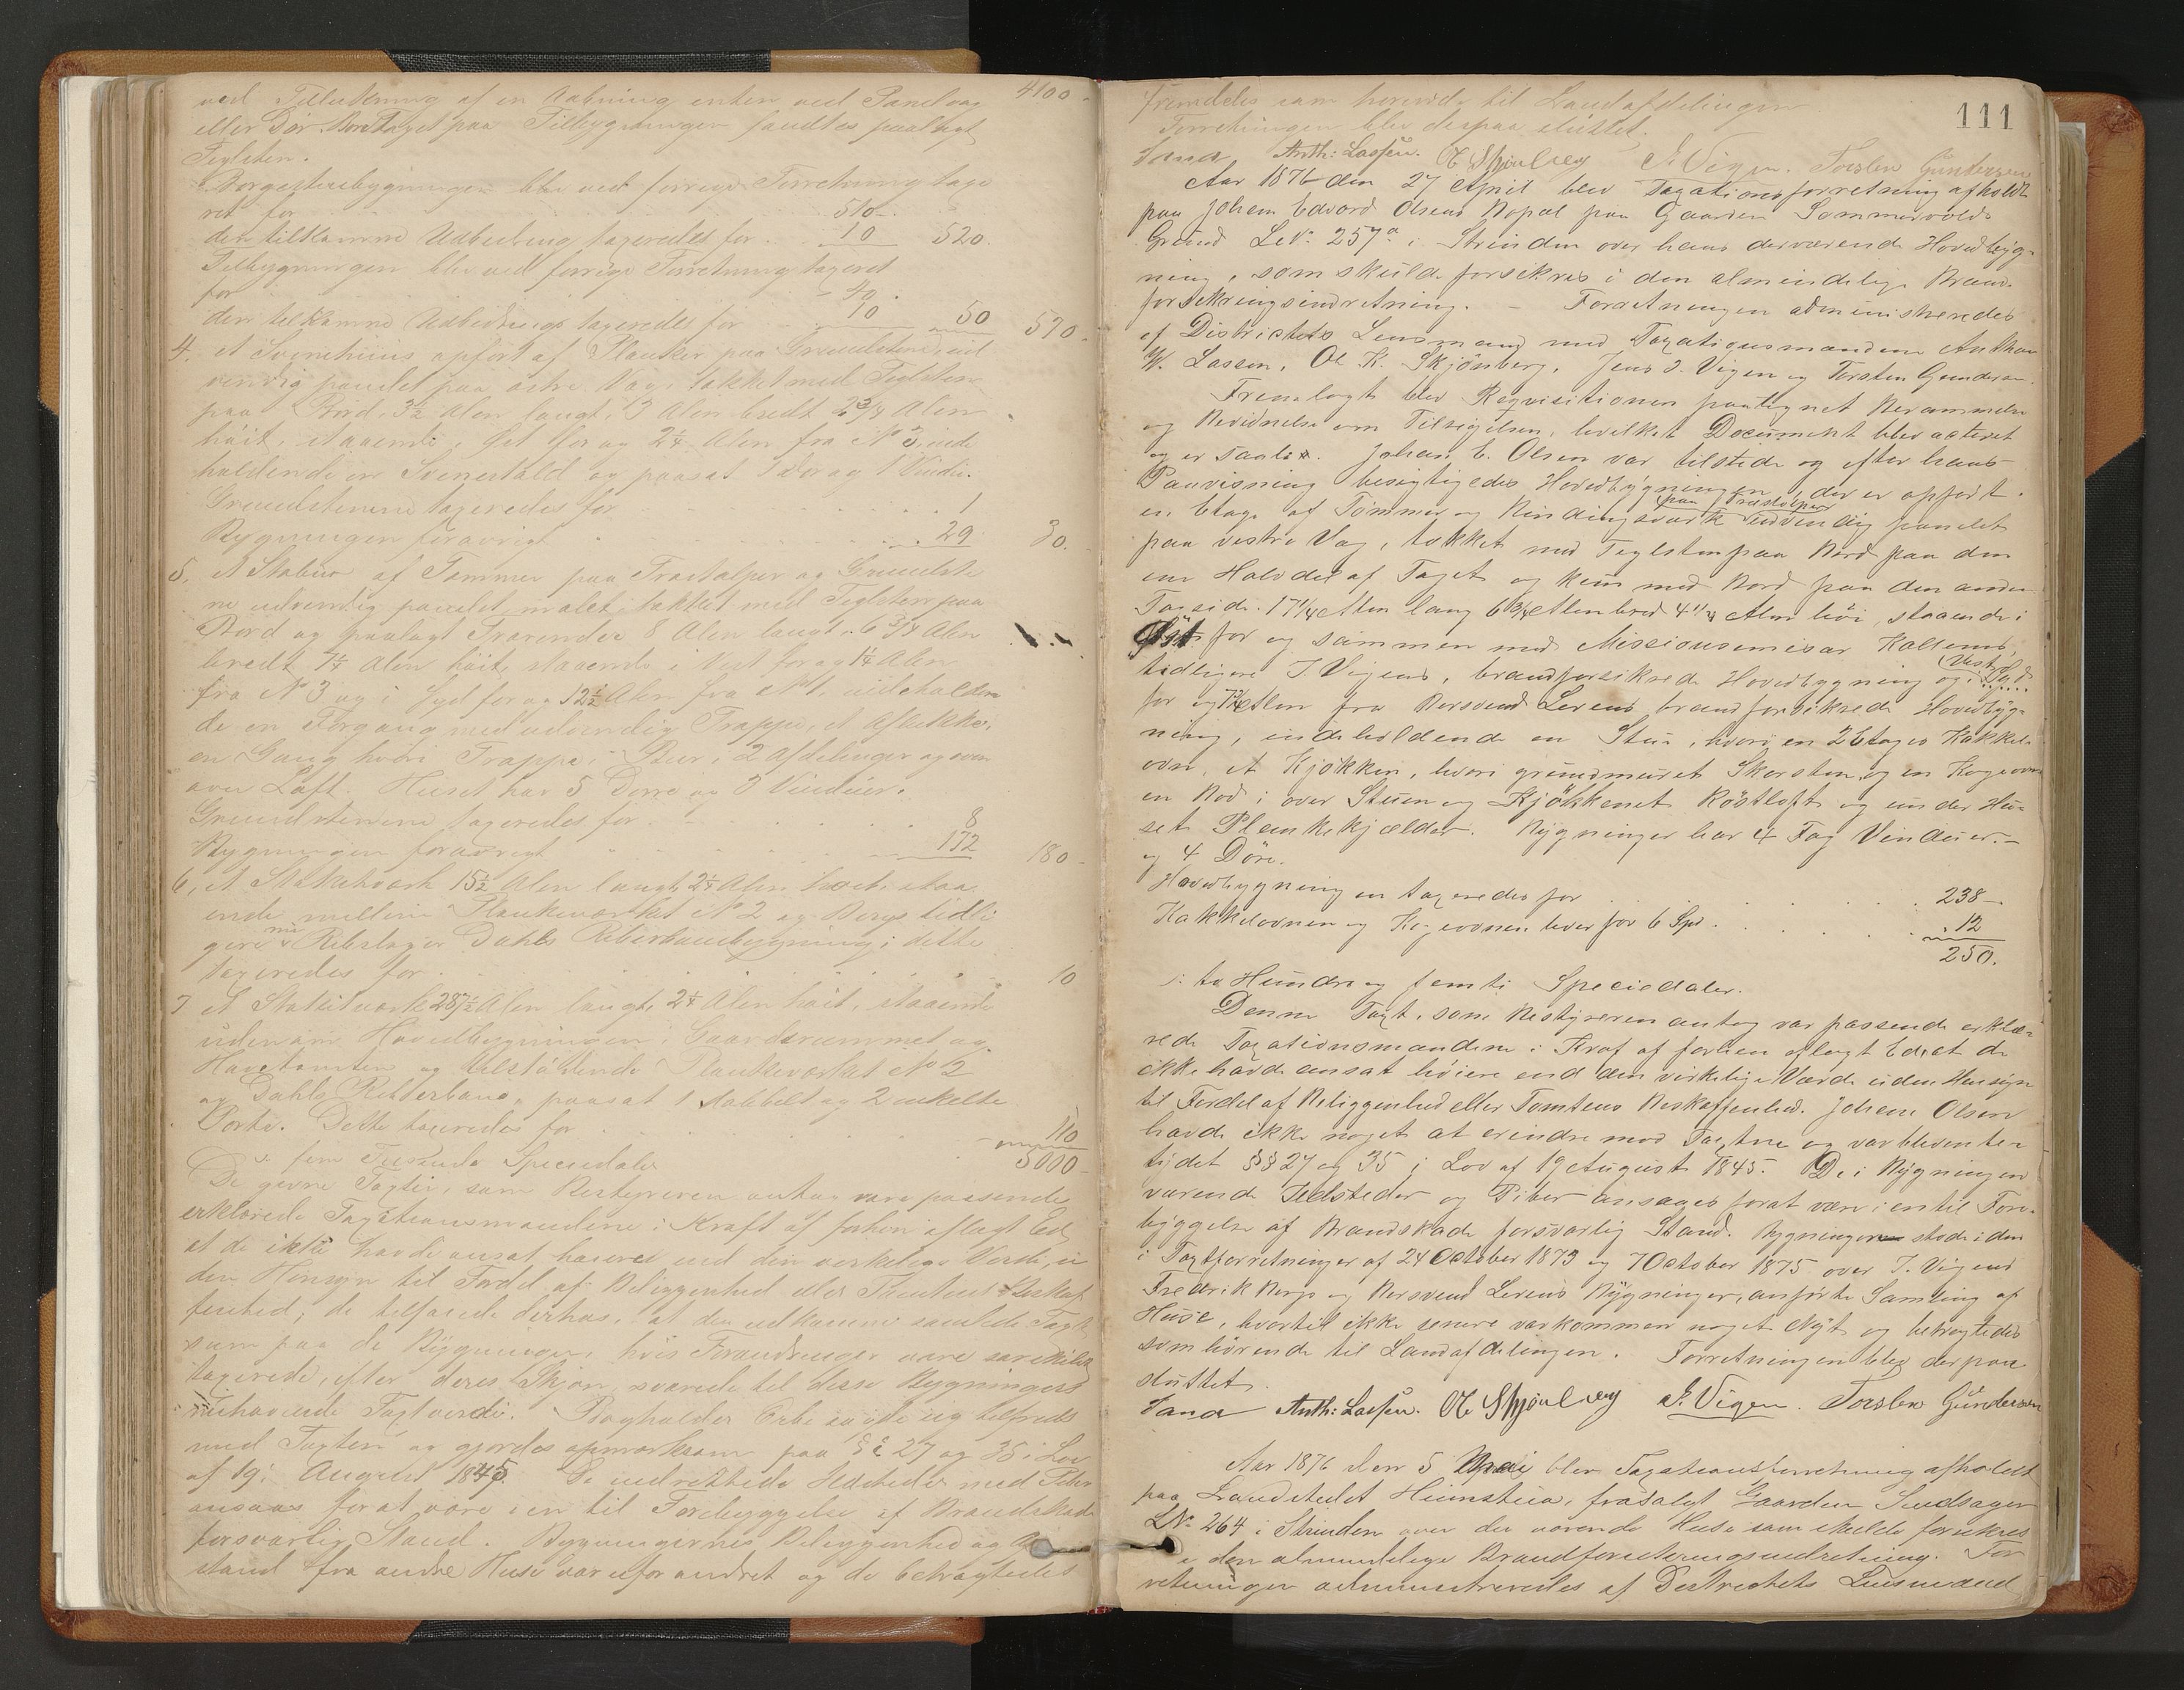 ved Tillukkning af en Aabning enten ved Panelvag 4100-
eller Dør. Bordtaget paa Tilbygningen fandtes paalagt
Teglsten.
Borgestuebygningen blev ved forrige Forretning taxe
ret for 510-
den tilkomne Udbedring taxeredes for 10 520.
Tilbygningen blev ved forrige Forretning taxeret
for 40.
den tilkomne Udbedring taxeredes for 10 50 570.
4. et Svinehuus opført af Planker paa Grundstene, ud
vendig panelet paa østre Væg, takket med Teglsten
paa Bord, 3½ Alen langt, 3 Alen bredt 2¾ Alen
höit, staaende i Øst for og 2¼ Alen fra N 3, inde
holdende en Svinestald og paasat 1 Dør og 1 Vindu.
Grundstenene taxeredes for 1
Bygningen forøvrigt 29 30.
5. et Stabur af Tømmer paa Træstolper og Grundste
ne udvendig panelet, malet, takket med Teglsten paa
Bord og paalagt Trærender 8 Alen langt, 6¾ Alen
bredt 7¼ Alen höit, staaende i Vest for og 1¼ Alen
fra N 3 og i Syd for og 12½ Alen fra N 1, indeholden
de en Forgang med udvendig Trappe, et Aflukke,
en Gang hvori Trappe, Bur i 2 Afdelinger og oven
over Loft. Huset har 5 Dørre og 3 Vinduer.
Grundstenene taxeredes for 8
Bygningen forøvrigt 172 180-
6, et Stakitværk 15½ Alen langt, 2¼ Alen høit, staa
ende mellem Plankeværket N 2 og Bergs tidli
gere nu Rebslager Dahls Reberbanebygning; dette
taxeredes for 10
7 et Stakitværk 287½ Alen langt, 2¼ Alen höit, staaende
udenom Hovedbygningen, Gaardsrummet og
Havetomten og tilstødende Plankeværket N 2
og Dahls Reberbane, paasat 1 dobbelt og 2 enkelte
Porte. Dette taxeredes for 110
5000-
: fem Tusende Speciedaler
De givne Taxter, som Bestyreren antog være passende
erklærede Taxationsmændene i Kraft af forhen aflagt Ed,
at de ikke havde ansat høiere end den virkelige Værdi, u
den Hensyn til Fordel af Beliggenhed eller Tomtens Beskaf
fenhed; de tilføiede derhos, at den udkomne samlede Taxt
sum paa de Bygninger, hvis Forandringer vare særskilt
taxerede, efter deres Skjøn svarede til disse Bygningers
nuhavende Taxtværdi. Bogholder Orbe sagde sig tilfreds
med Taxten og gjordes opmærksom paa §§ 27 og 35 i Lov
af 19: August 1845. De indrettede Ildsteder med Piber
ansaaes for at være i en til Forebyggelse af Brandskade
forsvarlig Stand. Bygningernes Beliggenhed og Af
stand fra andre Huse var uforandret og de betragtedes
111
fremdeles som hørende til Landafdelingen.
Forretningen blev derpaa sluttet.
Sand Anth: Lassen. O K Skjönberg J. Vigen. Torsten Gundersen
Aar 1876 den 27 April blev Taxationsforretning afholdt
paa Johan Edvard Olsens Bopæl paa Gaarden Sommervolds
Grund LeN: 257a i Strinden over hans derværende Hovedbyg-
ning, som skulde forsikres i den almindelige Brand-
forsikringsindretning. - Forretningen administreredes
af Distriktets Lensmand med Taxationsmændene Anthon
W. Lassen, Ole K. Skjönberg, Jens J. Vigen og Torsten Gundersen.
Fremlagt blev Reqvisitionen paategnet Berammelse
og Bevidnelse om Tilsigelsen, hvilket Document blev acteret
og er saal: Johan E. Olsen var tilstede og efter hans
Paavisning besigtigedes Hovedbygningen, der er opført i
en Etage af Tömmer og Bindingsværk paa Træstolper udvendig panelet
paa vestre Væg, tækket med Teglsten paa Bord paa den
ene Halvdel af Taget og kun med Bord paa den anden
Tagside. 17¼ Alen lang 6¾ Alen bred 4¼ Alen höi, staaende i
Øst for og sammen med Missionsemisær Kaltems,
tidligere J. Vigens, brandforsikrede Hovedbygning og i Vest
for og Alen fra Bersvend Levens brandforsikrede Hovedbyg-
ning, indeholdende en Stue, hvori en 2 Etages Kakkel-
ovn, et Kjøkken, hvori grundmuret Skorsten og en Kogeovn
en Bod i over Stuen og Kjökkenet Röstloft og under Hu-
set Plankekjælder. Bygningen har 4 Fag Vinduer.-
og 4 Döre.
Hovedbygningen taxeredes for 238-
Kakkelovnen og Kogeovnen hver for 6 Spd. 12
250.
: to Hundre og femti Speciedaler.
Denne Taxt, som Bestyreren antog var passende erklæ-
rede Taxationsmændene i Kraf af forhen aflagt Ed, at de
ikke havde ansat høiere end den virkelige Værdi uden Hensyn
til Fordel af Beliggenhed eller Tomtens Beskaffenhed. Johan Olsen
havde ikke noget at erindre mod Taxten og var bleven te-
tydet §§ 27 og 35 i Lov af 19 August 1845. De i Bygningen
værende Ildsteder og Piber ansages forat være i en til Fore-
byggelse af Brandskade forsvarlig Stand. Bygningen stode i den
i Taxtforretninger af 24 October 1873 og 7 October 1875 over J. Vigens
Fredrik Bergs og Bersvend Levens Bygninger, anførte Samling af
Huse, hvortil ikke senere var kommen noget Nyt og betragtedes
som hörende til Landafdelingen. Forretningen blev derpaa
sluttet.
Sand Anth: Lassen. O K Skjönberg J. Vigen. Torsten Gundersen
Aar 1876 den 5 Mai blev Taxationsforretning afholdt
paa Landstedet Heimstua, frasolgt Gaarden
LN: 264 i Strinden over der værende Huse som skulde forsikres
i den almindelige Brandforsikringsindretning. For
retningen administreredes af Destriktets Lensmand